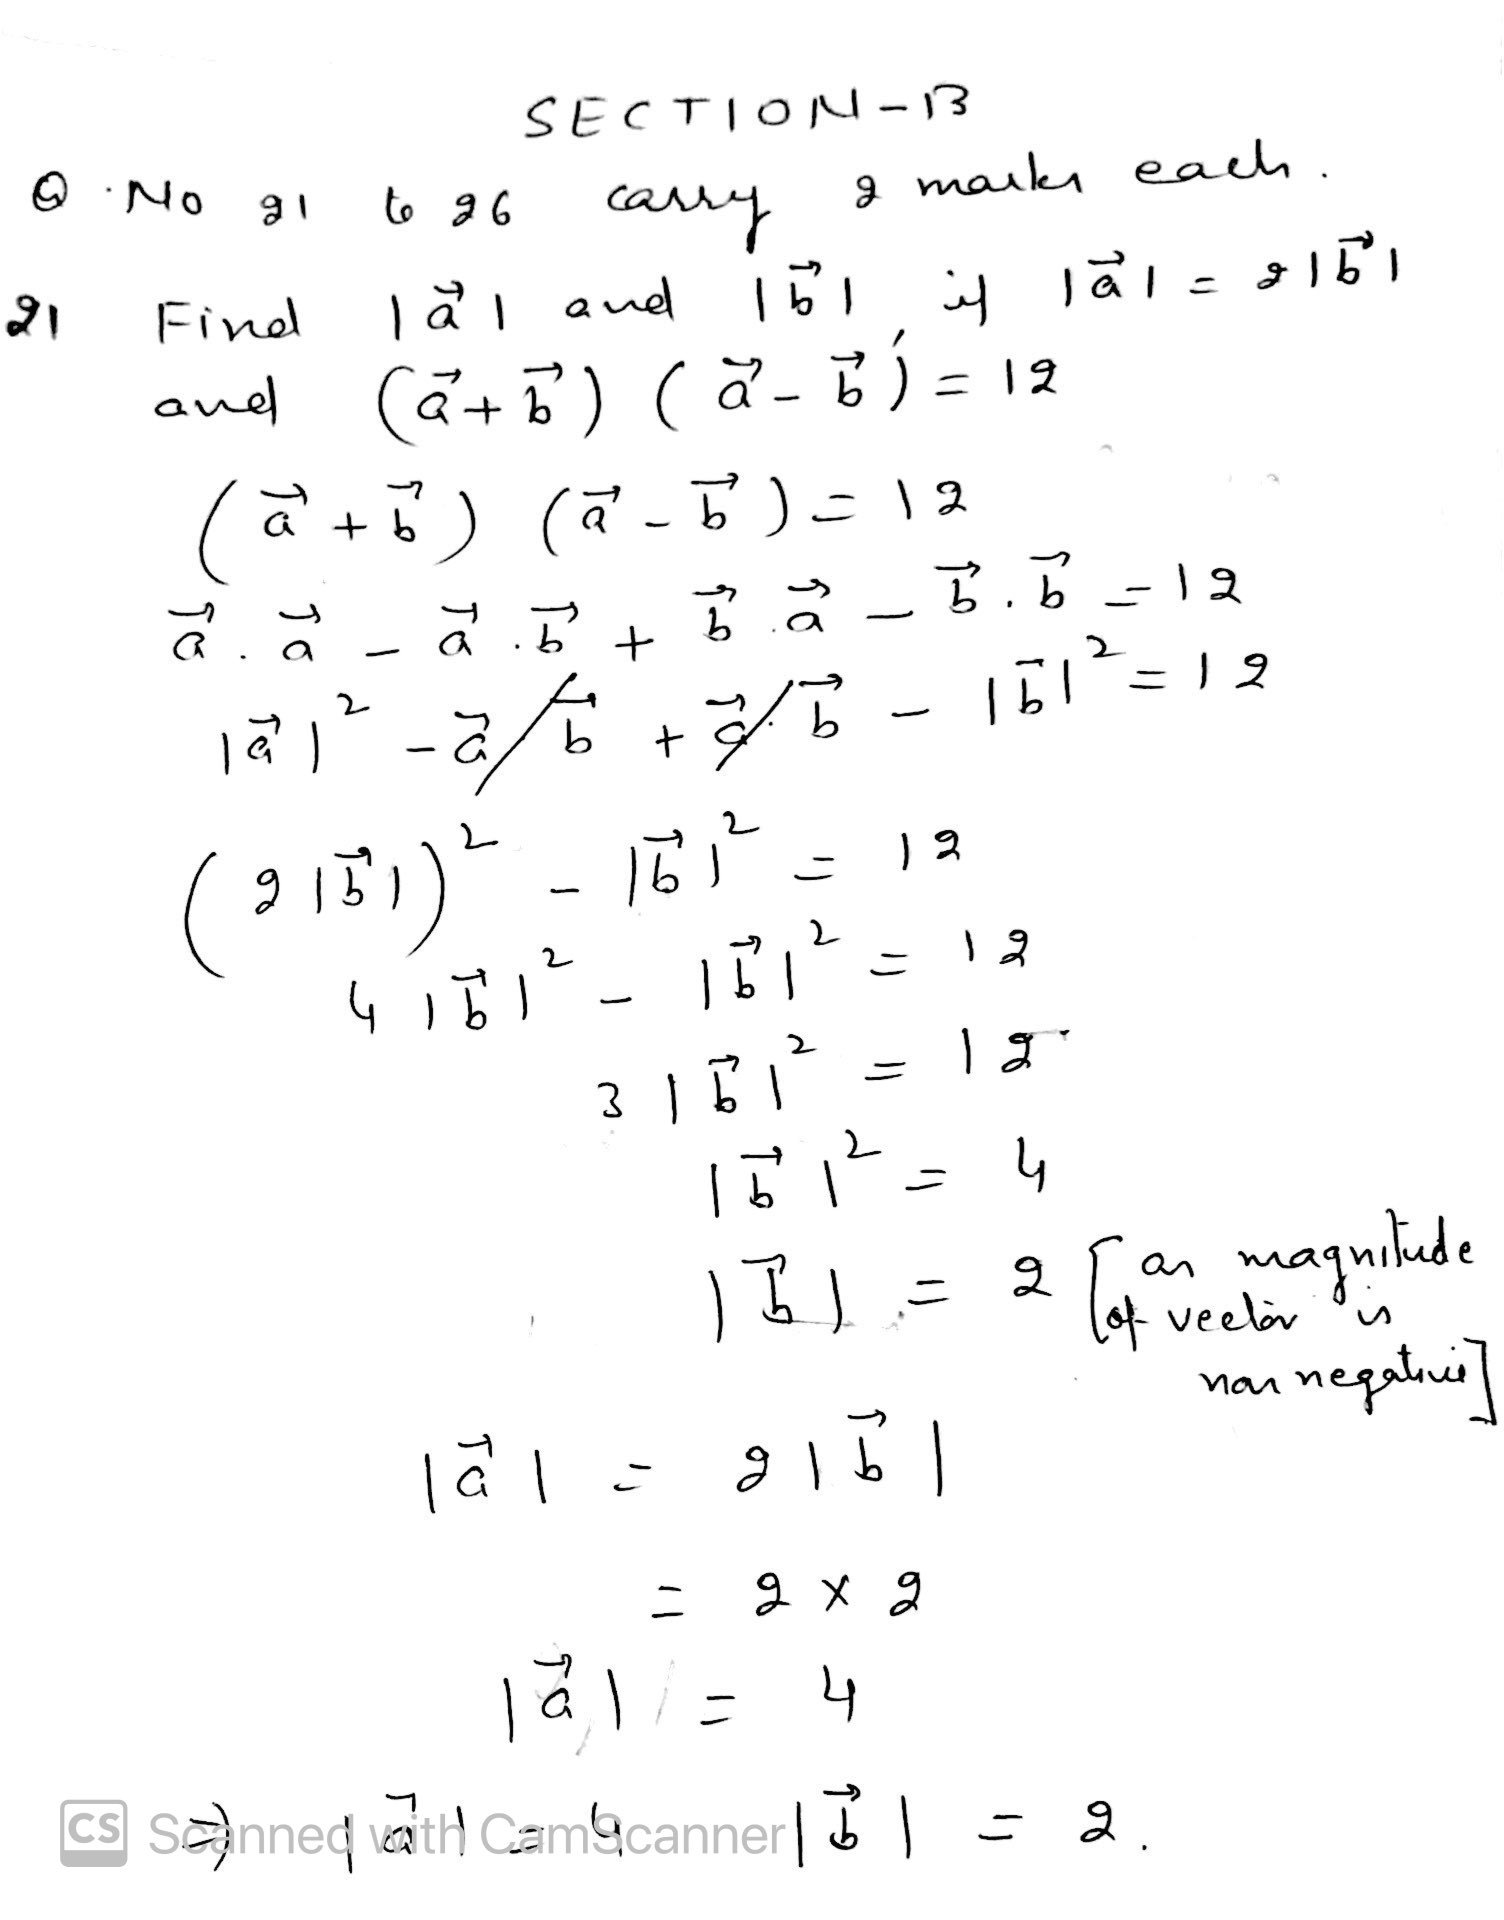 SECTION-B
Q.No 21 to 26 carry 2 marks each.
21 Find |a⃗| and |b⃗| if |a⃗| = 2|b⃗|
and (a⃗+b⃗) (a⃗-b⃗) = 12
(a⃗+b⃗) (a⃗-b⃗) = 12
a⃗.a⃗ - a⃗.b⃗ + b⃗.a⃗ - b⃗.b⃗ = 12
|a⃗|² - a⃗ b⃗ + a⃗.b⃗ - |b⃗|² = 12
(2|b⃗|)² - |b⃗|² = 12
4|b⃗|² - |b⃗|² = 12
3|b⃗|² = 12
|b⃗|² = 4
|b⃗| = 2 [as magnitude
of vector is
non negative]
|a⃗| = 2|b⃗|
= 2 × 2
|a⃗| = 4
⇒ |a⃗| = 4 |b⃗| = 2.
CS Scanned with CamScanner